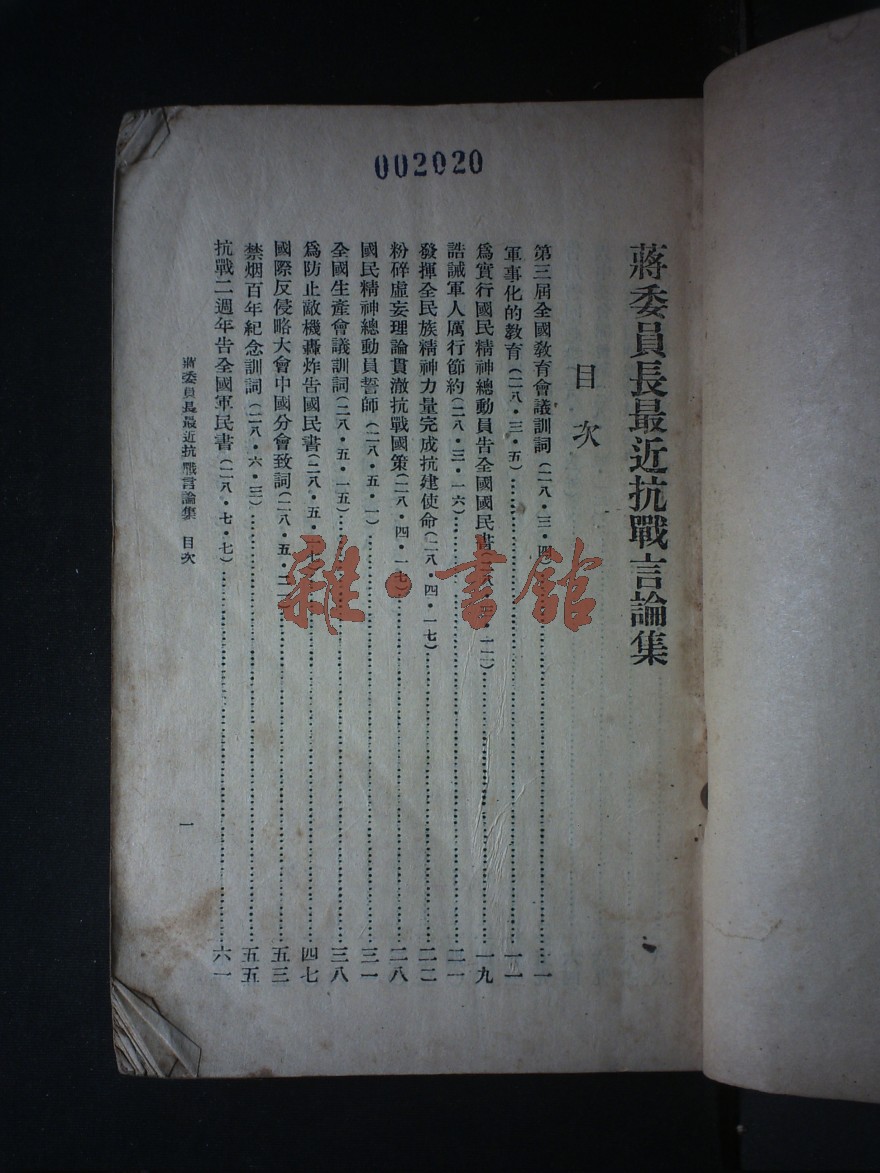 002020
蔣委員長最近抗戰言論集
目次
第三屆全國教育會議訓詞(二八・三・四
軍事化的教育(二八・三・五)……一一
爲實行國民精神總動員告全國國民書……一九
誥誡軍人厲行節約(二八・三・一六)……二一
發揮全民族精神力量完成抗建使命(二八・四・一七)……二二
粉碎虛妄理論貫澈抗戰國策(二八・四・一七)……二八
國民精神總動員誓師(二八・五・一)……三一
全國生產會議訓詞(二八・五・一五)……三八
爲防止敵機轟炸告國民書(二八・五・一七)……四七
國際反侵略大會中國分會致詞(二八・五・二……五三
禁烟百年紀念訓詞(二八・六・三)……五五
抗戰二週年告全國軍民書(二八・七・七)……六一
蔣委員長最近抗戰言論集 目次
一
雜・書館